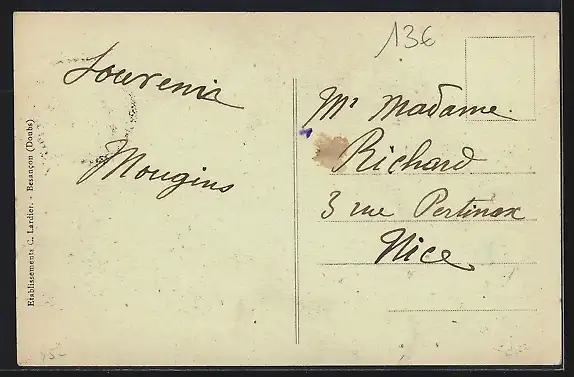 13€
Souvenir
Mougins
Mr Madame
Richard
3 rue Pertinax
Nice
Etablissements C. Lardier. - Besançon (Doubs)